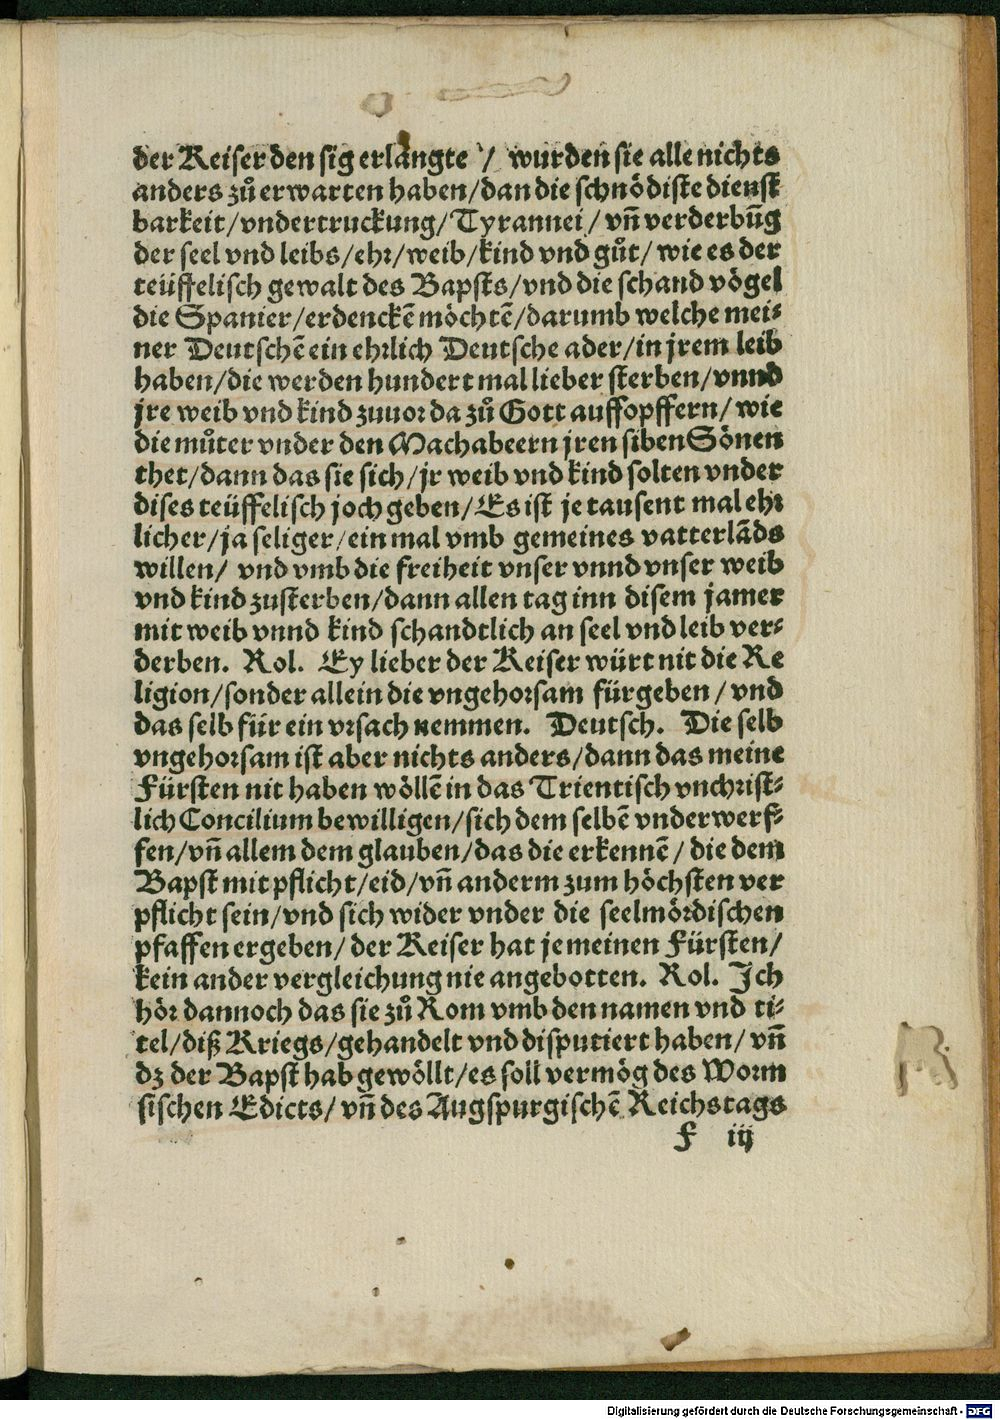 der Keiser den sig erlangte / wurden sie alle nichts
anders zuͦ erwarten haben/dan die schnödiste dienst
barkeit/vndertruckung/Tyrannei/vn̄ verderbūg
der seel vnd leibs/ehꝛ/weib/kind vnd guͦt/wie es der
teüffelisch gewalt des Bapsts/vnd die schand vögel
die Spanier/erdenckē möchtē/darumb welche mei⸗
ner Deutschē ein ehꝛlich Deutsche ader/in jrem leib
haben/die werden hundert mal lieber sterben/vnnd
jre weib vnd kind zuuoꝛ da zuͦ Gott auffopffern/wie
die muͦter vnder den Machabeern jren siben Sönen
thet/dann das sie sich/jr weib vnd kind solten vnder
dises teüffelisch joch geben/Es ist je tausent mal ehꝛ
licher/ja seliger/ein mal vmb gemeines vatterlāds
willen/ vnd vmb die freiheit vnser vnnd vnser weib
vnd kind zusterben/dann allen tag inn disem jamer
mit weib vnnd kind schandtlich an seel vnd leib ver⸗
derben. Rol. Ey lieber der Keiser würt nit die Re
ligion/sonder allein die vngehoꝛsam fürgeben/vnd
das selb für ein vꝛsach nemmen. Deutsch. Die selb
vngehoꝛsam ist aber nichts anders/dann das meine
Fürsten nit haben wöllē in das Trientisch vnchꝛist⸗
lich Concilium bewilligen/sich dem selbē vnderwerf⸗
fen/vn̄ allem dem glauben/das die erkennē/die dem
Bapst mit pflicht/eid/vn̄ anderm zum höchsten ver
pflicht sein/vnd sich wider vnder die seelmöꝛdischen
pfaffen ergeben/der Keiser hat je meinen Fürsten/
kein ander vergleichung nie angebotten. Rol. Ich
höꝛ dannoch das sie zuͦ Rom vmb den namen vnd ti⸗
tel/diß Kriegs/gehandelt vnd disputiert haben/vn̄
dz der Bapst hab gewöllt/es soll vermög des Woꝛm
sischen Edicts/vn̄ des Augspurgischē Reichstags
F iij
Digitalisierung gefördert durch die Deutsche Forschungsgemeinschaft - DFG